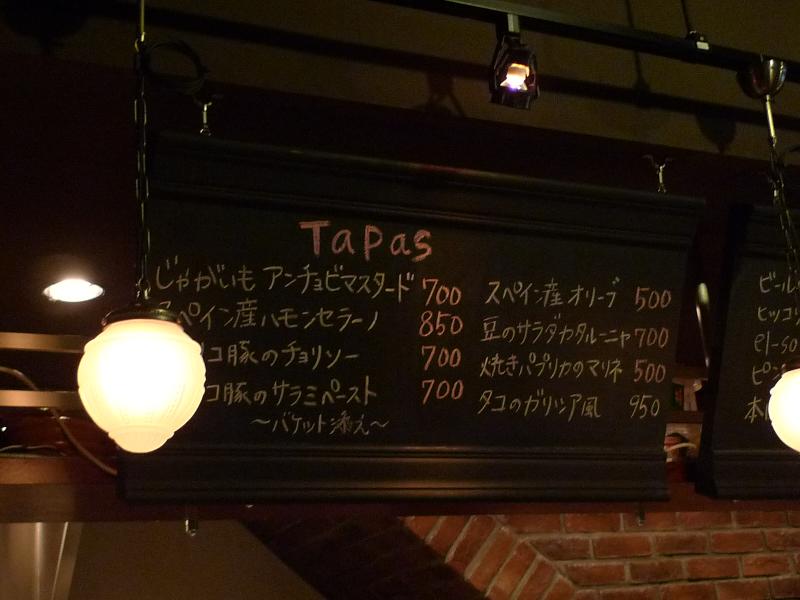 Tapas
じゃがいも アンチョビマスタード 700
スペイン産ハモンセラーノ 850
コ豚のチョリソー 700
コ豚のサラミペースト 700
〜バケット添え〜
スペイン産 オリーブ 500
豆のサラダカタルーニャ 700
焼きパプリカのマリネ 500
タコのガリシア風 950
ビール
ヒッコリ
el-so
ピン
本